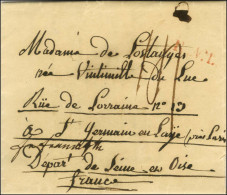 Madame de Lostanges
née Vintimille du Luc
Rüe de Lorraine n° 13
à St Germain en Laÿe (près Paris
Départ de Seine en Oise
france